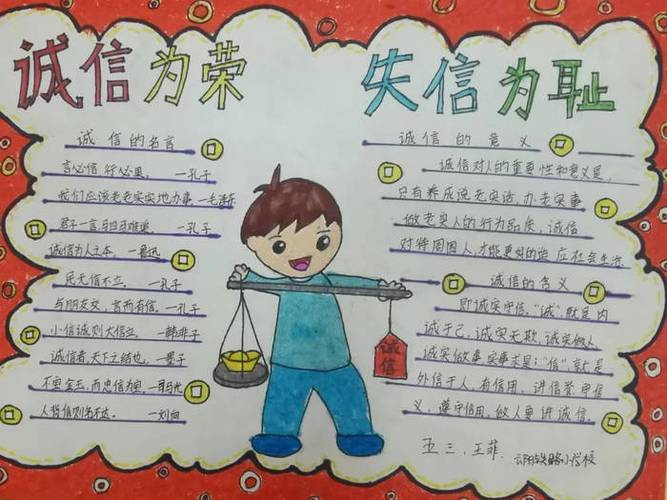 诚信为荣
失信为耻
诚信的名言
言必信 行必果。 —孔子
我们应该老老实实地办事 —毛泽东
君子一言,驷马难追 —孔子
诚信为人之本。 —鲁迅
民无信不立。 —孔子
与朋友交,言而有信。—孔子
小信诚则大信立。—韩非子
诚信者,天下之结也。—墨子
不宝金玉,而忠信为宝 —司马光
人背信则名不达。 —刘向
诚信
诚信的意义
诚信对人的重要性和意义是,
只有养成说老实话,办老实事
做老实人的行为品质,诚信
对待周围人,才能更好的适应社会生活
诚信的含义
即诚实守信,“诚”,就是内
诚于己,诚实无欺,诚实做人
诚实做事 实事求是:“信”,就是
外信于人,有信用,讲信誉,守信
义,遵守信用,做人要讲诚信。
五三,王菲、 小学校